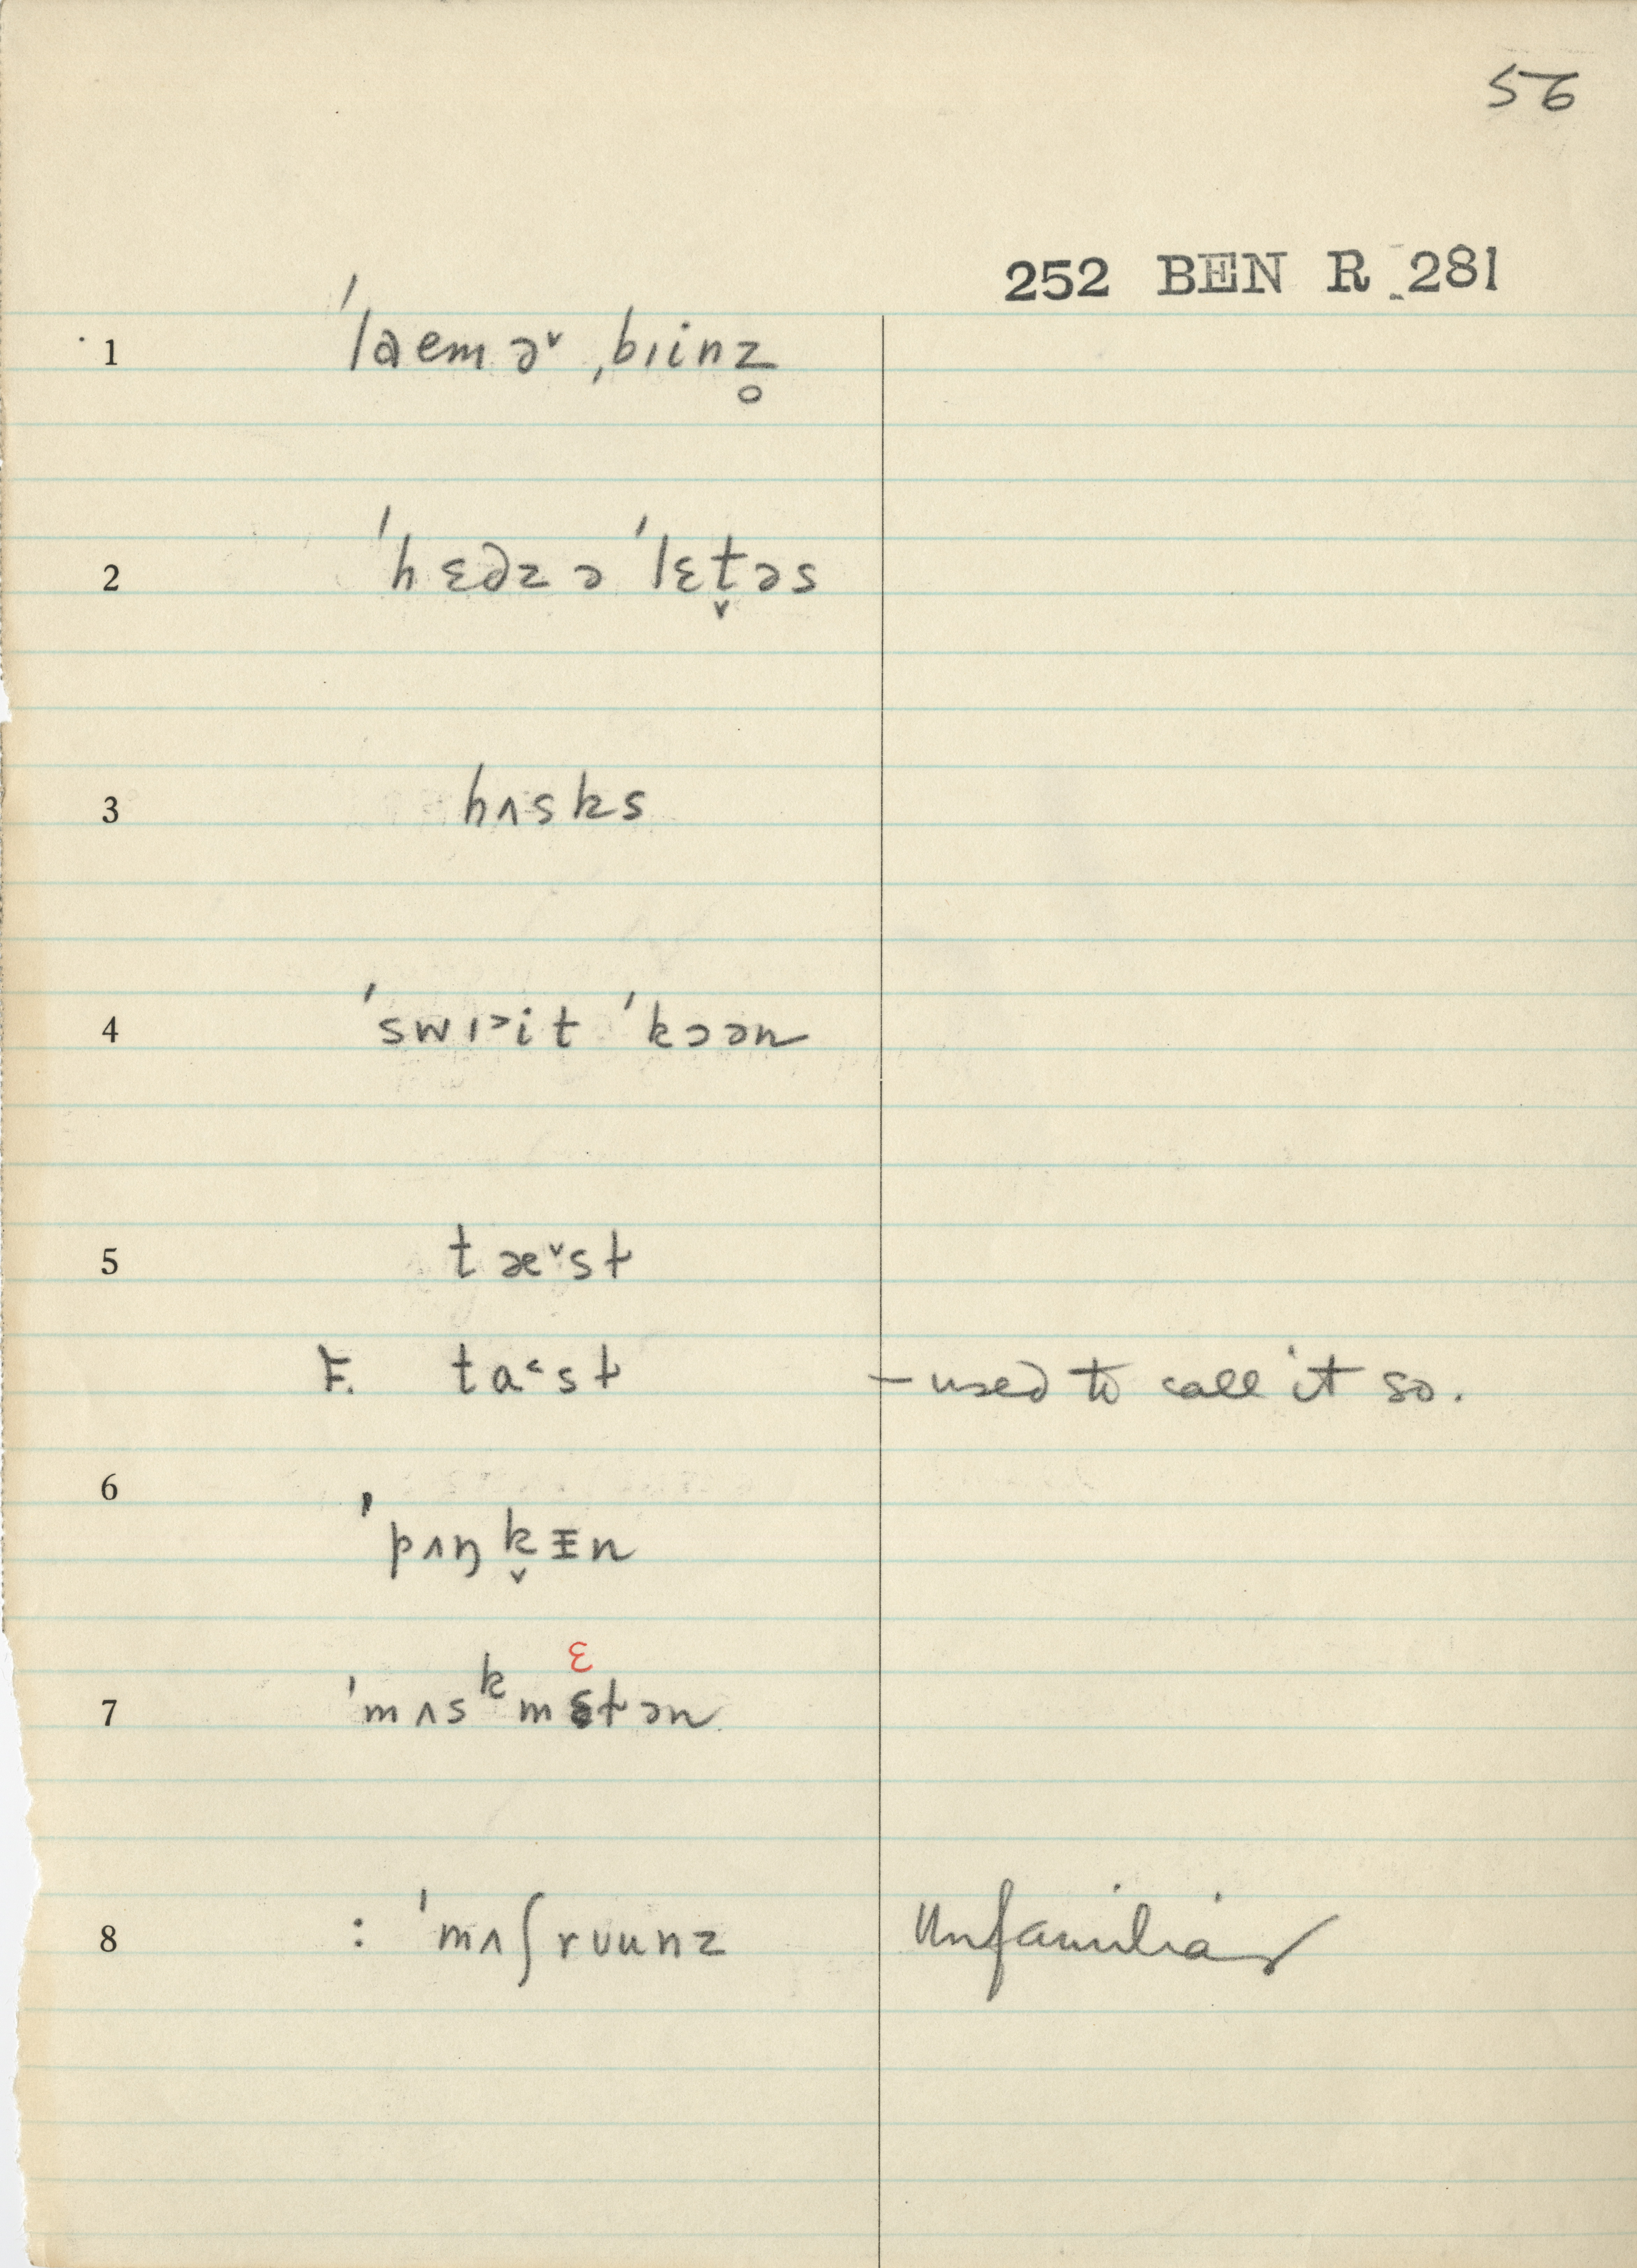 56
252 BEN R 281
1 ˈlaemə˅ ˌbɪinz̥
2 ˈhɛəzə ˈlɛt̬əs
3 hʌsks
4 ˈswɪ˃it ˈkɔən
5 tæ˅st
F. ta˂st – used to call it so.
6 ˈpʌŋk̬ɪ̵n
ɛ
7 ˈmʌsᵏmɛtən
8 : ˈmʌʃrʊunz Unfamiliar